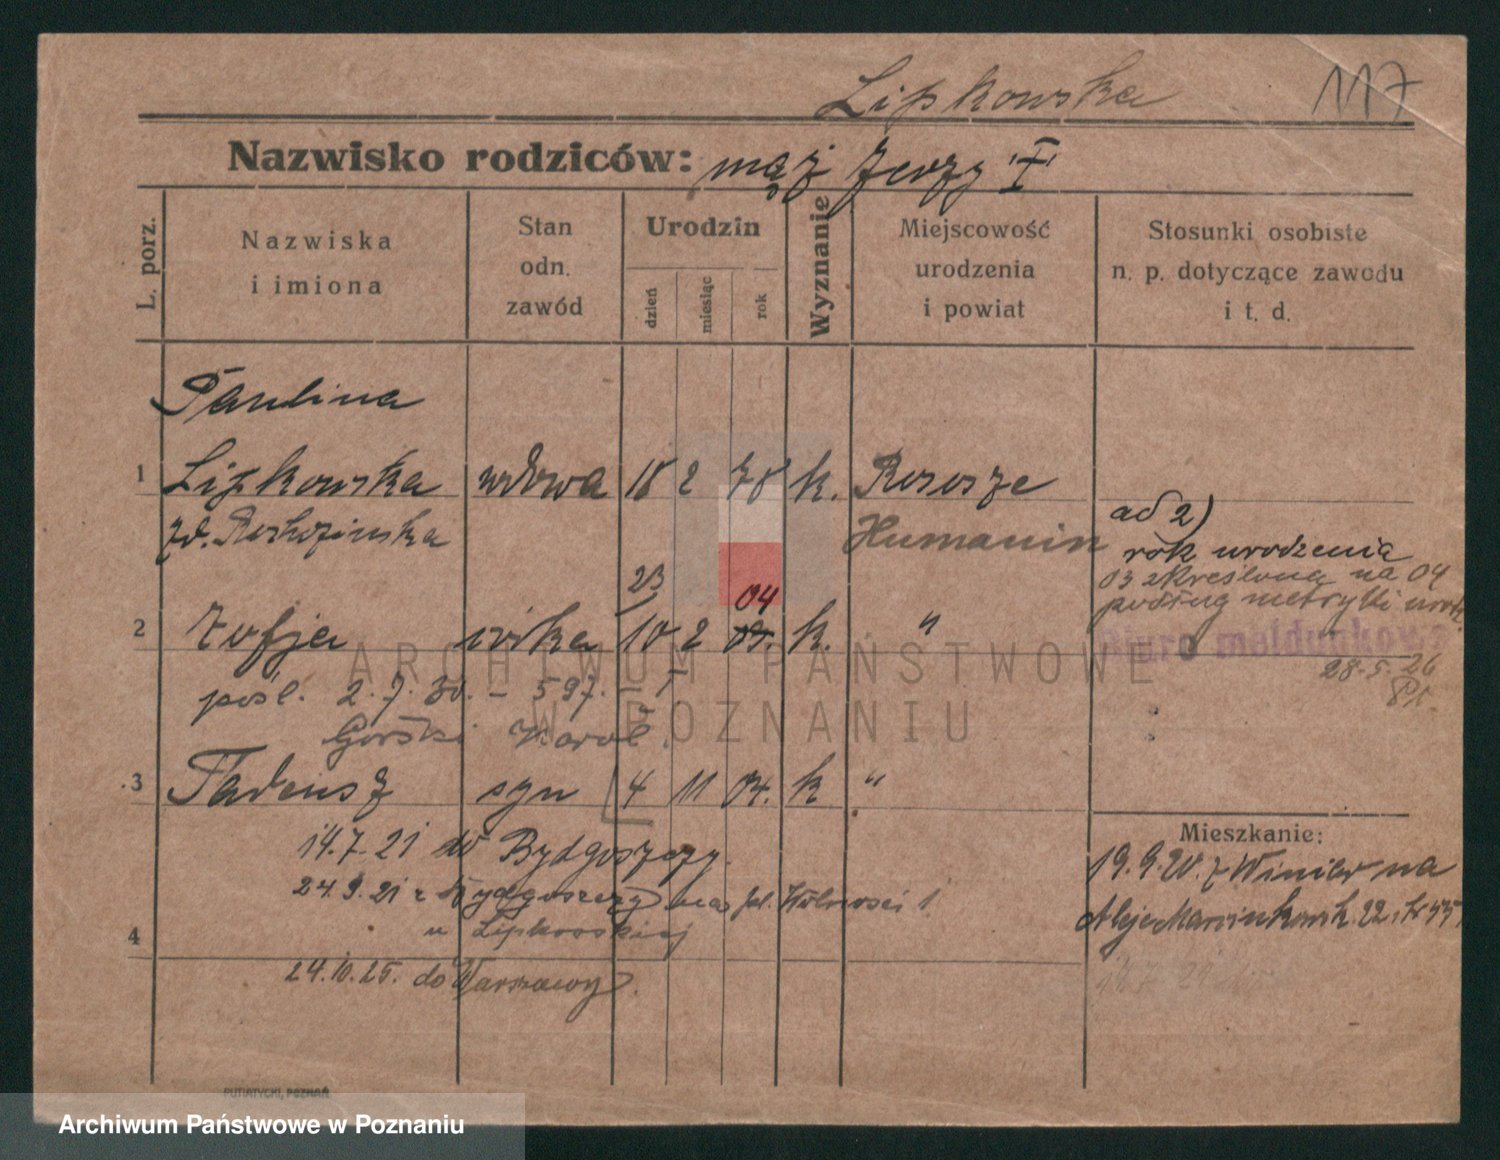 Lipkowska
117
Nazwisko rodziców: mąż Jerzy
L. porz.
Nazwiska i imiona
Stan odn. zawód
Urodzin
dzień
miesiąc
rok
Wyznanie
Miejscowość urodzenia i powiat
Stosunki osobiste n. p. dotyczące zawodu i t. d.
Paulina
1 Lipkowska wdowa 18 2 78 k. Rososze
zd. Humanin
ad 2)
rok urodzenia
03 skreślono na 04
podług metryki urodz.
23
04
2 Zofja córka 10 2 03. k. "
Biuro meldunkowe
28-5-26
pośl. 2.7.30. – 597. – I
Górski Karol.
3 Tadeusz syn 4 11 04. k "
14.7.21 do Bydgoszczy.
24.9.21 z Bydgoszczy na pl. Wolności 1
u Lipkowskiej
4
24.10.25. do Warszawy.
Mieszkanie:
19.9.20. z Winiar na
Aleje Marcinkowsk. 22,
PUTIATYCKI, POZNAŃ
ARCHIWUM PAŃSTWOWE
W POZNANIU
Archiwum Państwowe w Poznaniu